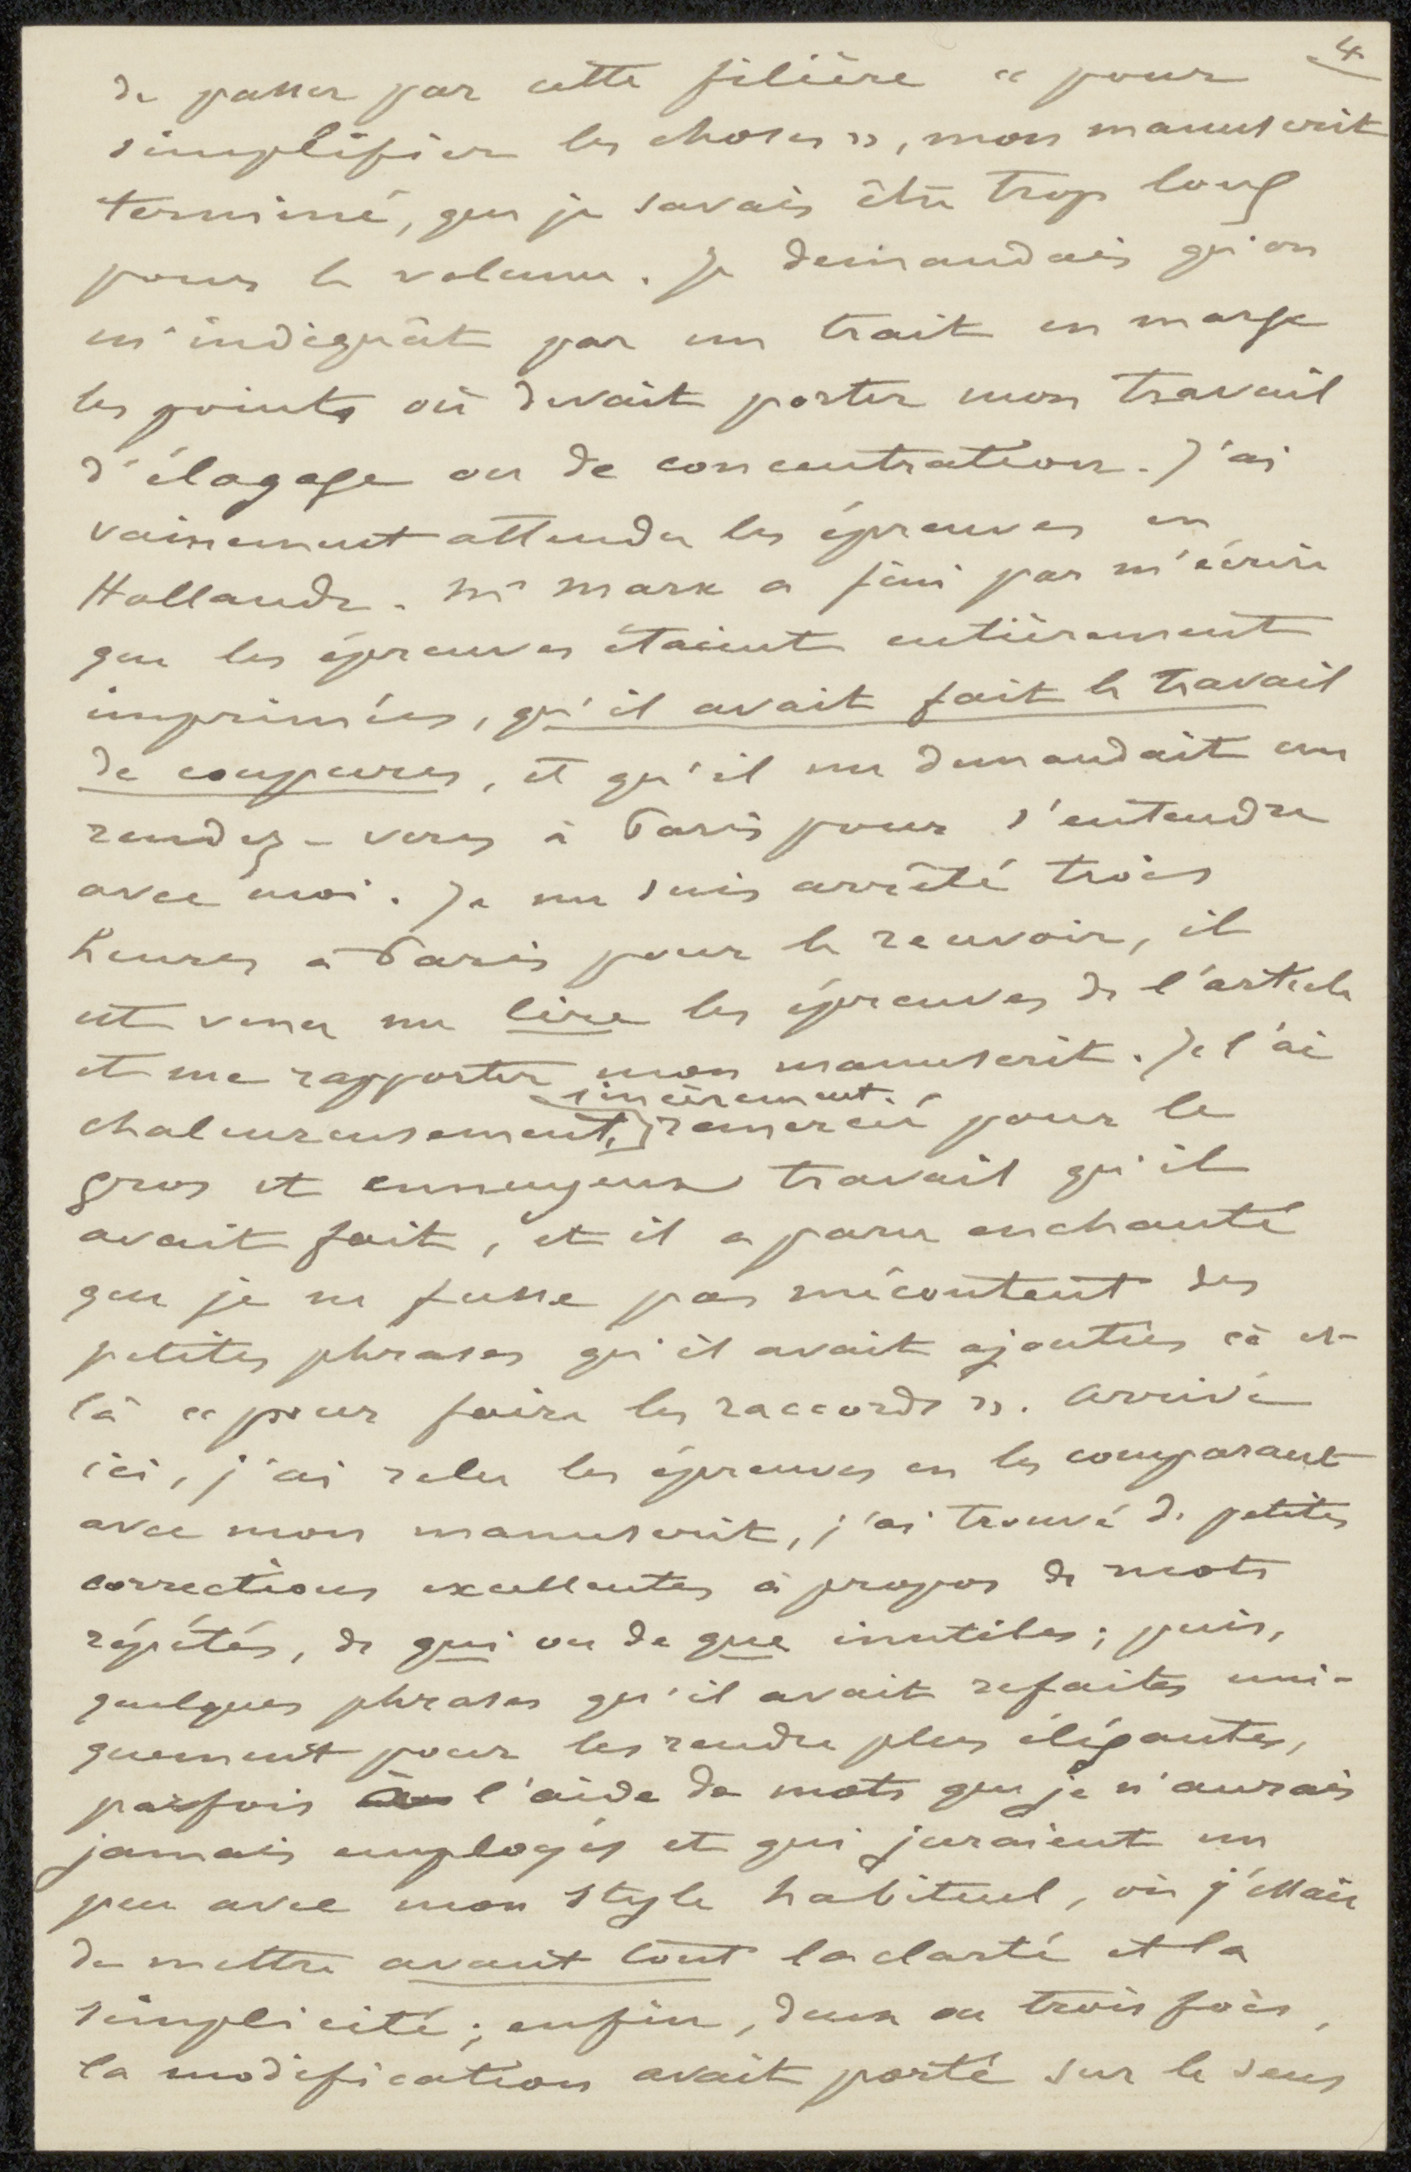 4
de passer par cette filière « pour
simplifier les choses », mon manuscrit
terminé, que je savais être trop long
pour le volume. Je demandais qu'on
m'indiquât par un trait en marge
les points où devait porter mon travail
d'élagage ou de concentration. J'ai
vainement attendu les épreuves en
Hollande. Mr Marx a fini par m'écrire
que les épreuves étaient entièrement
imprimées, qu'il avait fait le travail
de coupures, et qu'il me demandait un
rendez-vous à Paris pour s'entendre
avec moi. Je me suis arrêté trois
heures à Paris pour le recevoir, il
est venu me lire les épreuves de l'article
et me rapporter mon manuscrit. Je l'ai
sincèrement
chaleureusement, remercié pour le
gros et ennuyeux travail qu'il
avait fait, et il a paru enchanté
que je ne fusse pas mécontent des
petites phrases qu'il avait ajoutées çà et
là « pour faire les raccords ». Arrivé
ici, j'ai relu les épreuves en les comparant
avec mon manuscrit, j'ai trouvé de petites
corrections excellentes à propos de mots
répétés, de qui ou de que inutiles ; puis,
quelques phrases qu'il avait refaites uni-
quement pour les rendre plus élégantes,
parfois à l'aide de mots que je n'aurais
jamais employés et qui juraient un
peu avec mon style habituel, où j'essaie
de mettre avant tout la clarté et la
simplicité ; enfin, deux ou trois fois,
la modification avait porté sur le sens